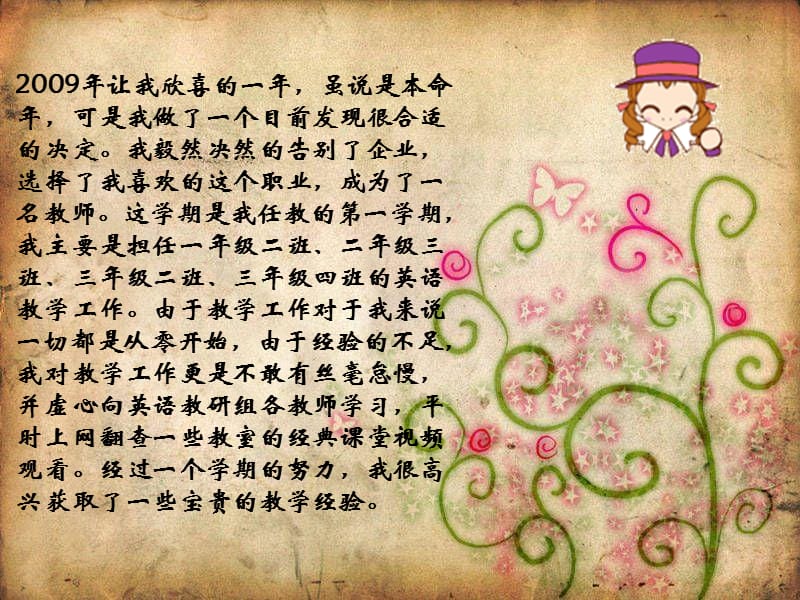 2009年让我欣喜的一年，虽说是本命
年，可是我做了一个目前发现很合适
的决定。我毅然决然的告别了企业，
选择了我喜欢的这个职业，成为了一
名教师。这学期是我任教的第一学期，
我主要是担任一年级二班、二年级三
班、三年级二班、三年级四班的英语
教学工作。由于教学工作对于我来说
一切都是从零开始，由于经验的不足，
我对教学工作更是不敢有丝毫怠慢，
并虚心向英语教研组各教师学习，平
时上网翻查一些教室的经典课堂视频
观看。经过一个学期的努力，我很高
兴获取了一些宝贵的教学经验。